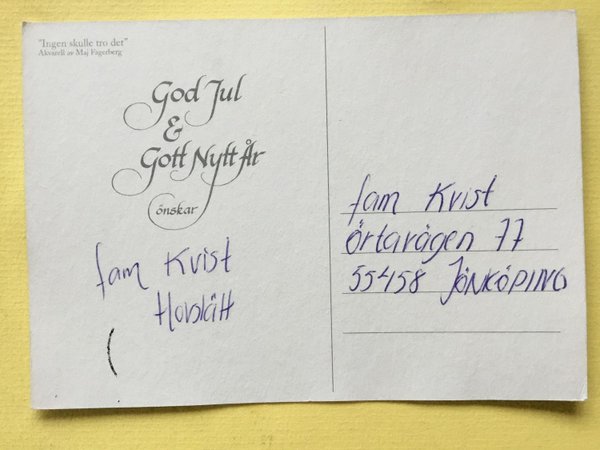 "Ingen skulle tro det"
Akvarell av Maj Fagerberg
God Jul
&
Gott Nytt År
önskar
fam Kvist
Hovslätt
fam Kvist
Örtavägen 77
55458 JÖNKÖPING